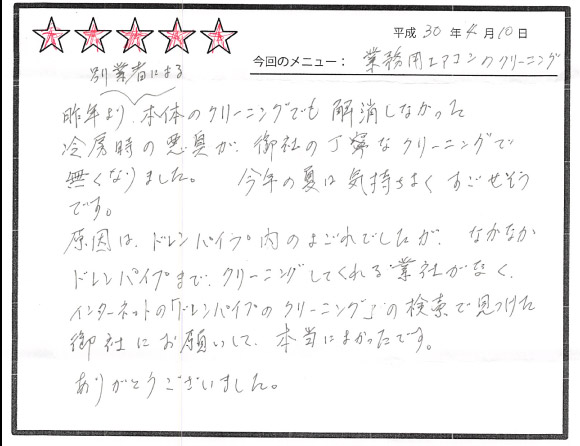 平成 30 年 4 月 10 日
今回のメニュー： 業務用エアコンのクリーニング
別業者による
昨年より、本体のクリーニングでも解消しなかった
冷房時の悪臭が、御社の丁寧なクリーニングで
無くなりました。 今年の夏は気持ちよくすごせそう
です。
原因は、ドレンパイプ内のよごれでしたが、なかなか
ドレンパイプまで、クリーニングしてくれる業社がなく、
インターネットの「ドレンパイプのクリーニング」の検索で見つけた
御社にお願いして、本当によかったです。
ありがとうございました。